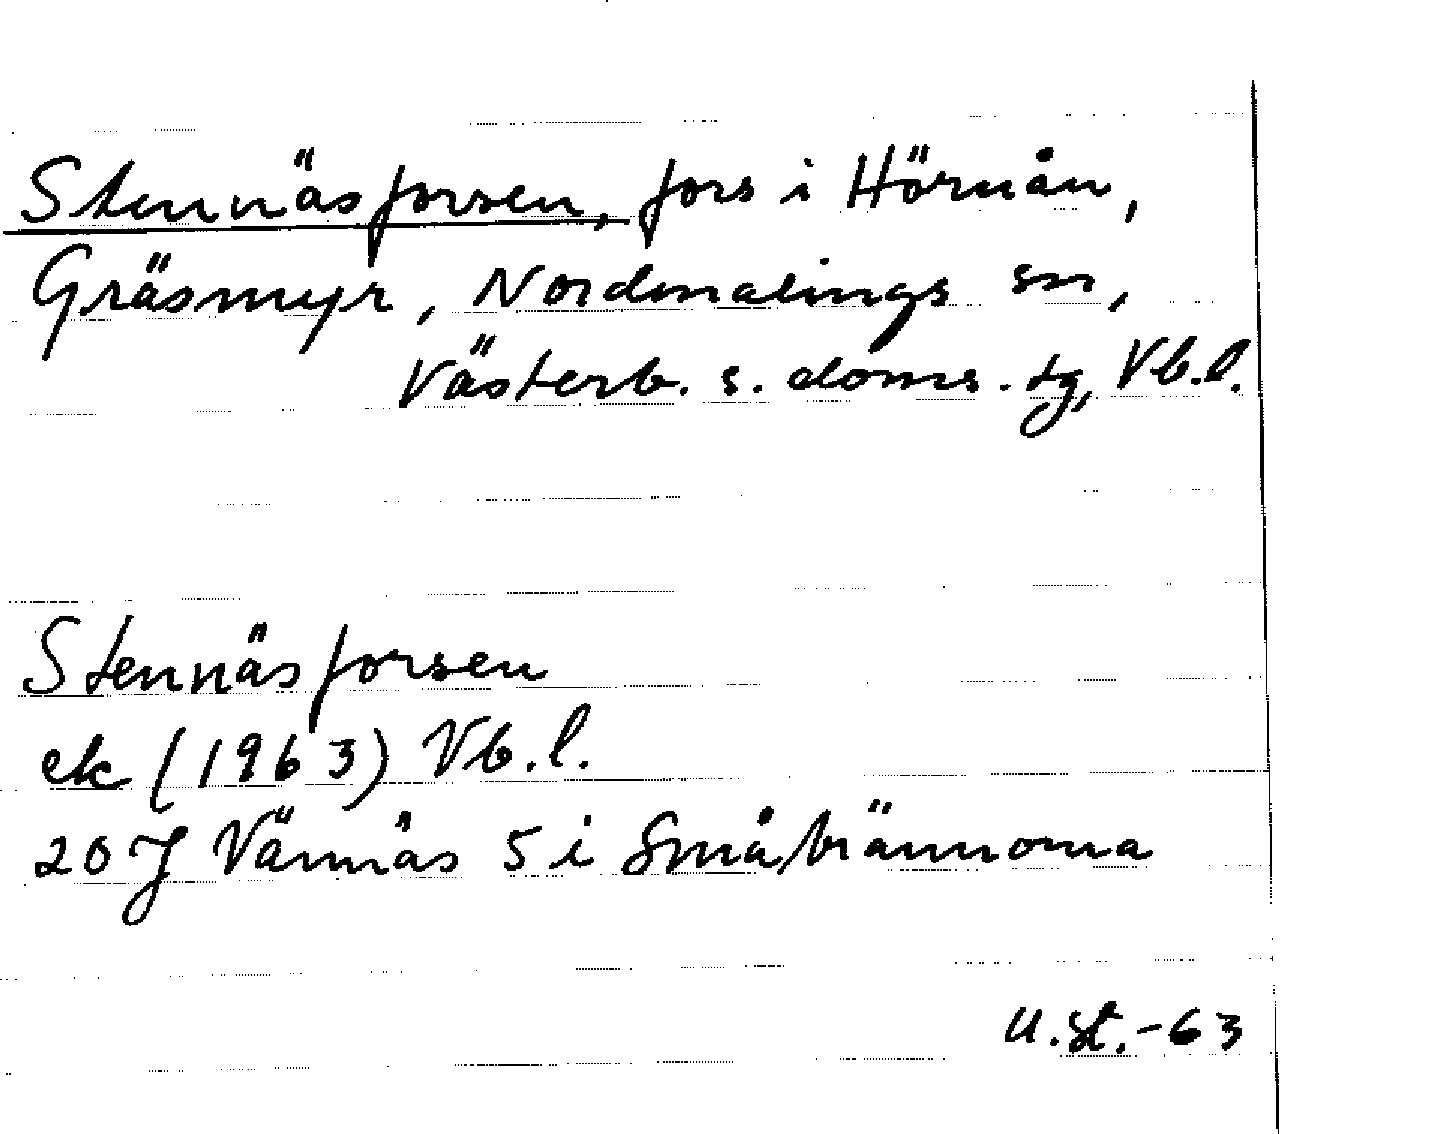 Stennäsforsen, fors i Hörnån,
Gräsmyr, Nordmalings sn,
Västerb. s. doms. tg, Vb.l.
Stennäsforsen
ek (1963) Vb.l.
20 J Vännäs 5 i Småbrännorna
U.St.-63